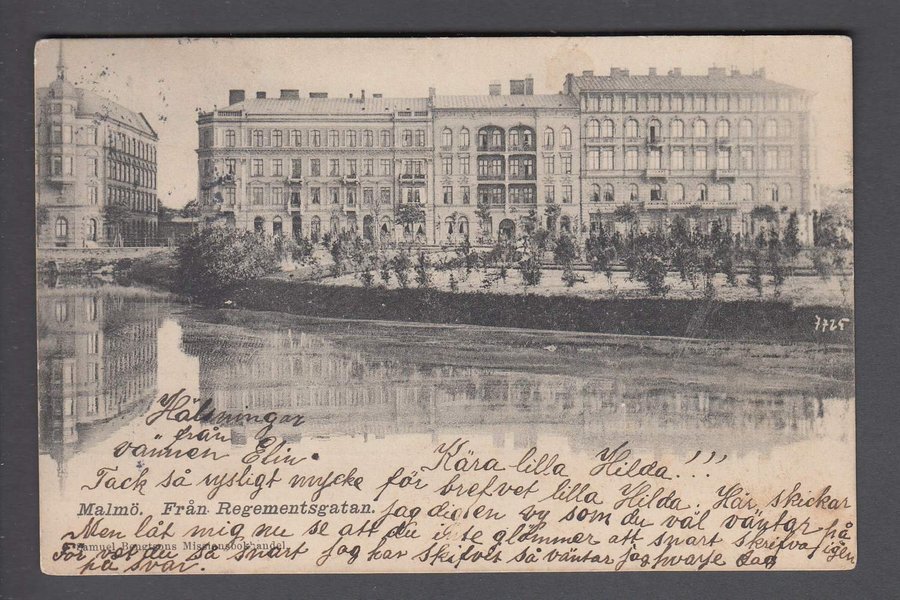 7725
Hälsningar
från
vännen Elin.
Kära lilla Hilda!!!
Tack så rysligt mycke för brefvet lilla Hilda. Här skickar
Malmö. Från Regementsgatan.
jag dig en vy som du väl väntar på
Men låt mig nu se att du i te glömmer att snart skrifva igen
Samuel Bengtssons Missionsbokhandel
För vet du så snart jag har skifvet så väntar jag hvarje dag
på svar.